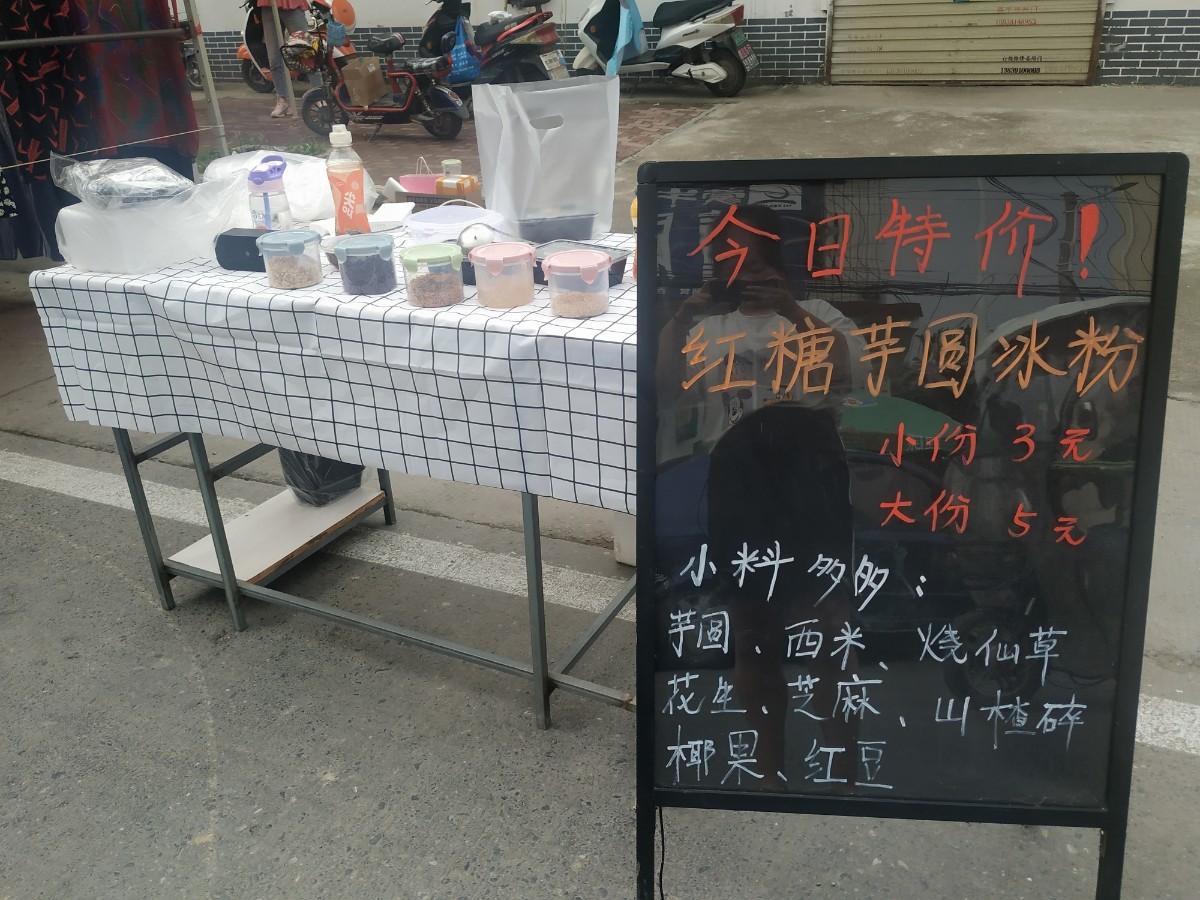 今日特价!
红糖芋圆冰粉
小份 3元
大份 5元
小料多多:
芋圆、西米、烧仙草
花生、芝麻、山楂碎
椰果、红豆